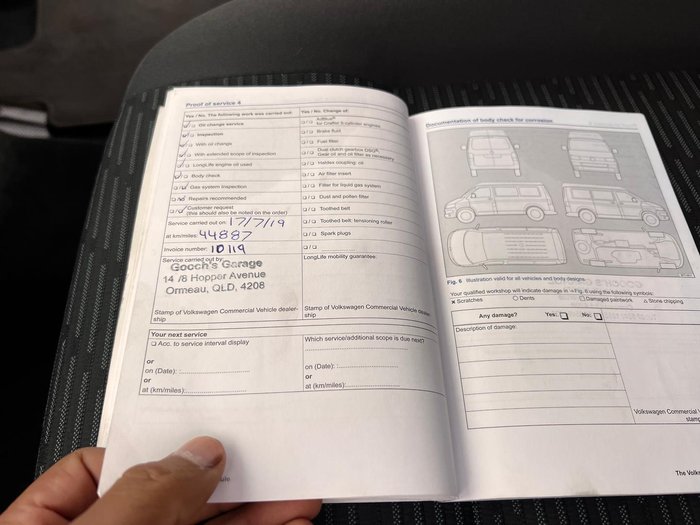 Proof of service 4
Yes / No. The following work was carried out:
Oil change service
Inspection
With oil change
With extended scope of inspection
LongLife engine oil used
Body check
Gas system inspection
Repairs recommended
Customer request
(this should also be noted on the order)
Service carried out on 17/7/19
at km/miles: 44887
Invoice number: 10119
Service carried out by
Gooch's Garage
14 /8 Hopper Avenue
Ormeau, QLD, 4208
Stamp of Volkswagen Commercial Vehicle dealer-
ship
Yes / No. Change of:
AdBlue®
for Crafter 5 cylinder engines
Brake fluid
Fuel filter
Dual clutch gearbox DSG®
Gear oil and oil filter as necessary
Haldex coupling: oil
Air filter insert
Filter for liquid gas system
Dust and pollen filter
Toothed belt
Toothed belt; tensioning roller
Spark plugs
LongLife mobility guarantee:
Stamp of Volkswagen Commercial Vehicle dealer-
ship
Your next service
Acc. to service interval display
or
on (Date):
or
at (km/miles):
Which service/additional scope is due next?
on (Date):
or
at (km/miles):
Documentation of body check for corrosion
Fig. 6 Illustration valid for all vehicles and body designs
Your qualified workshop will indicate damage in ⇒ Fig. 6 using the following symbols:
× Scratches ○ Dents □ Damaged paintwork △ Stone chipping
Any damage? Yes: No:
Description of damage:
Volkswagen Commercial
The